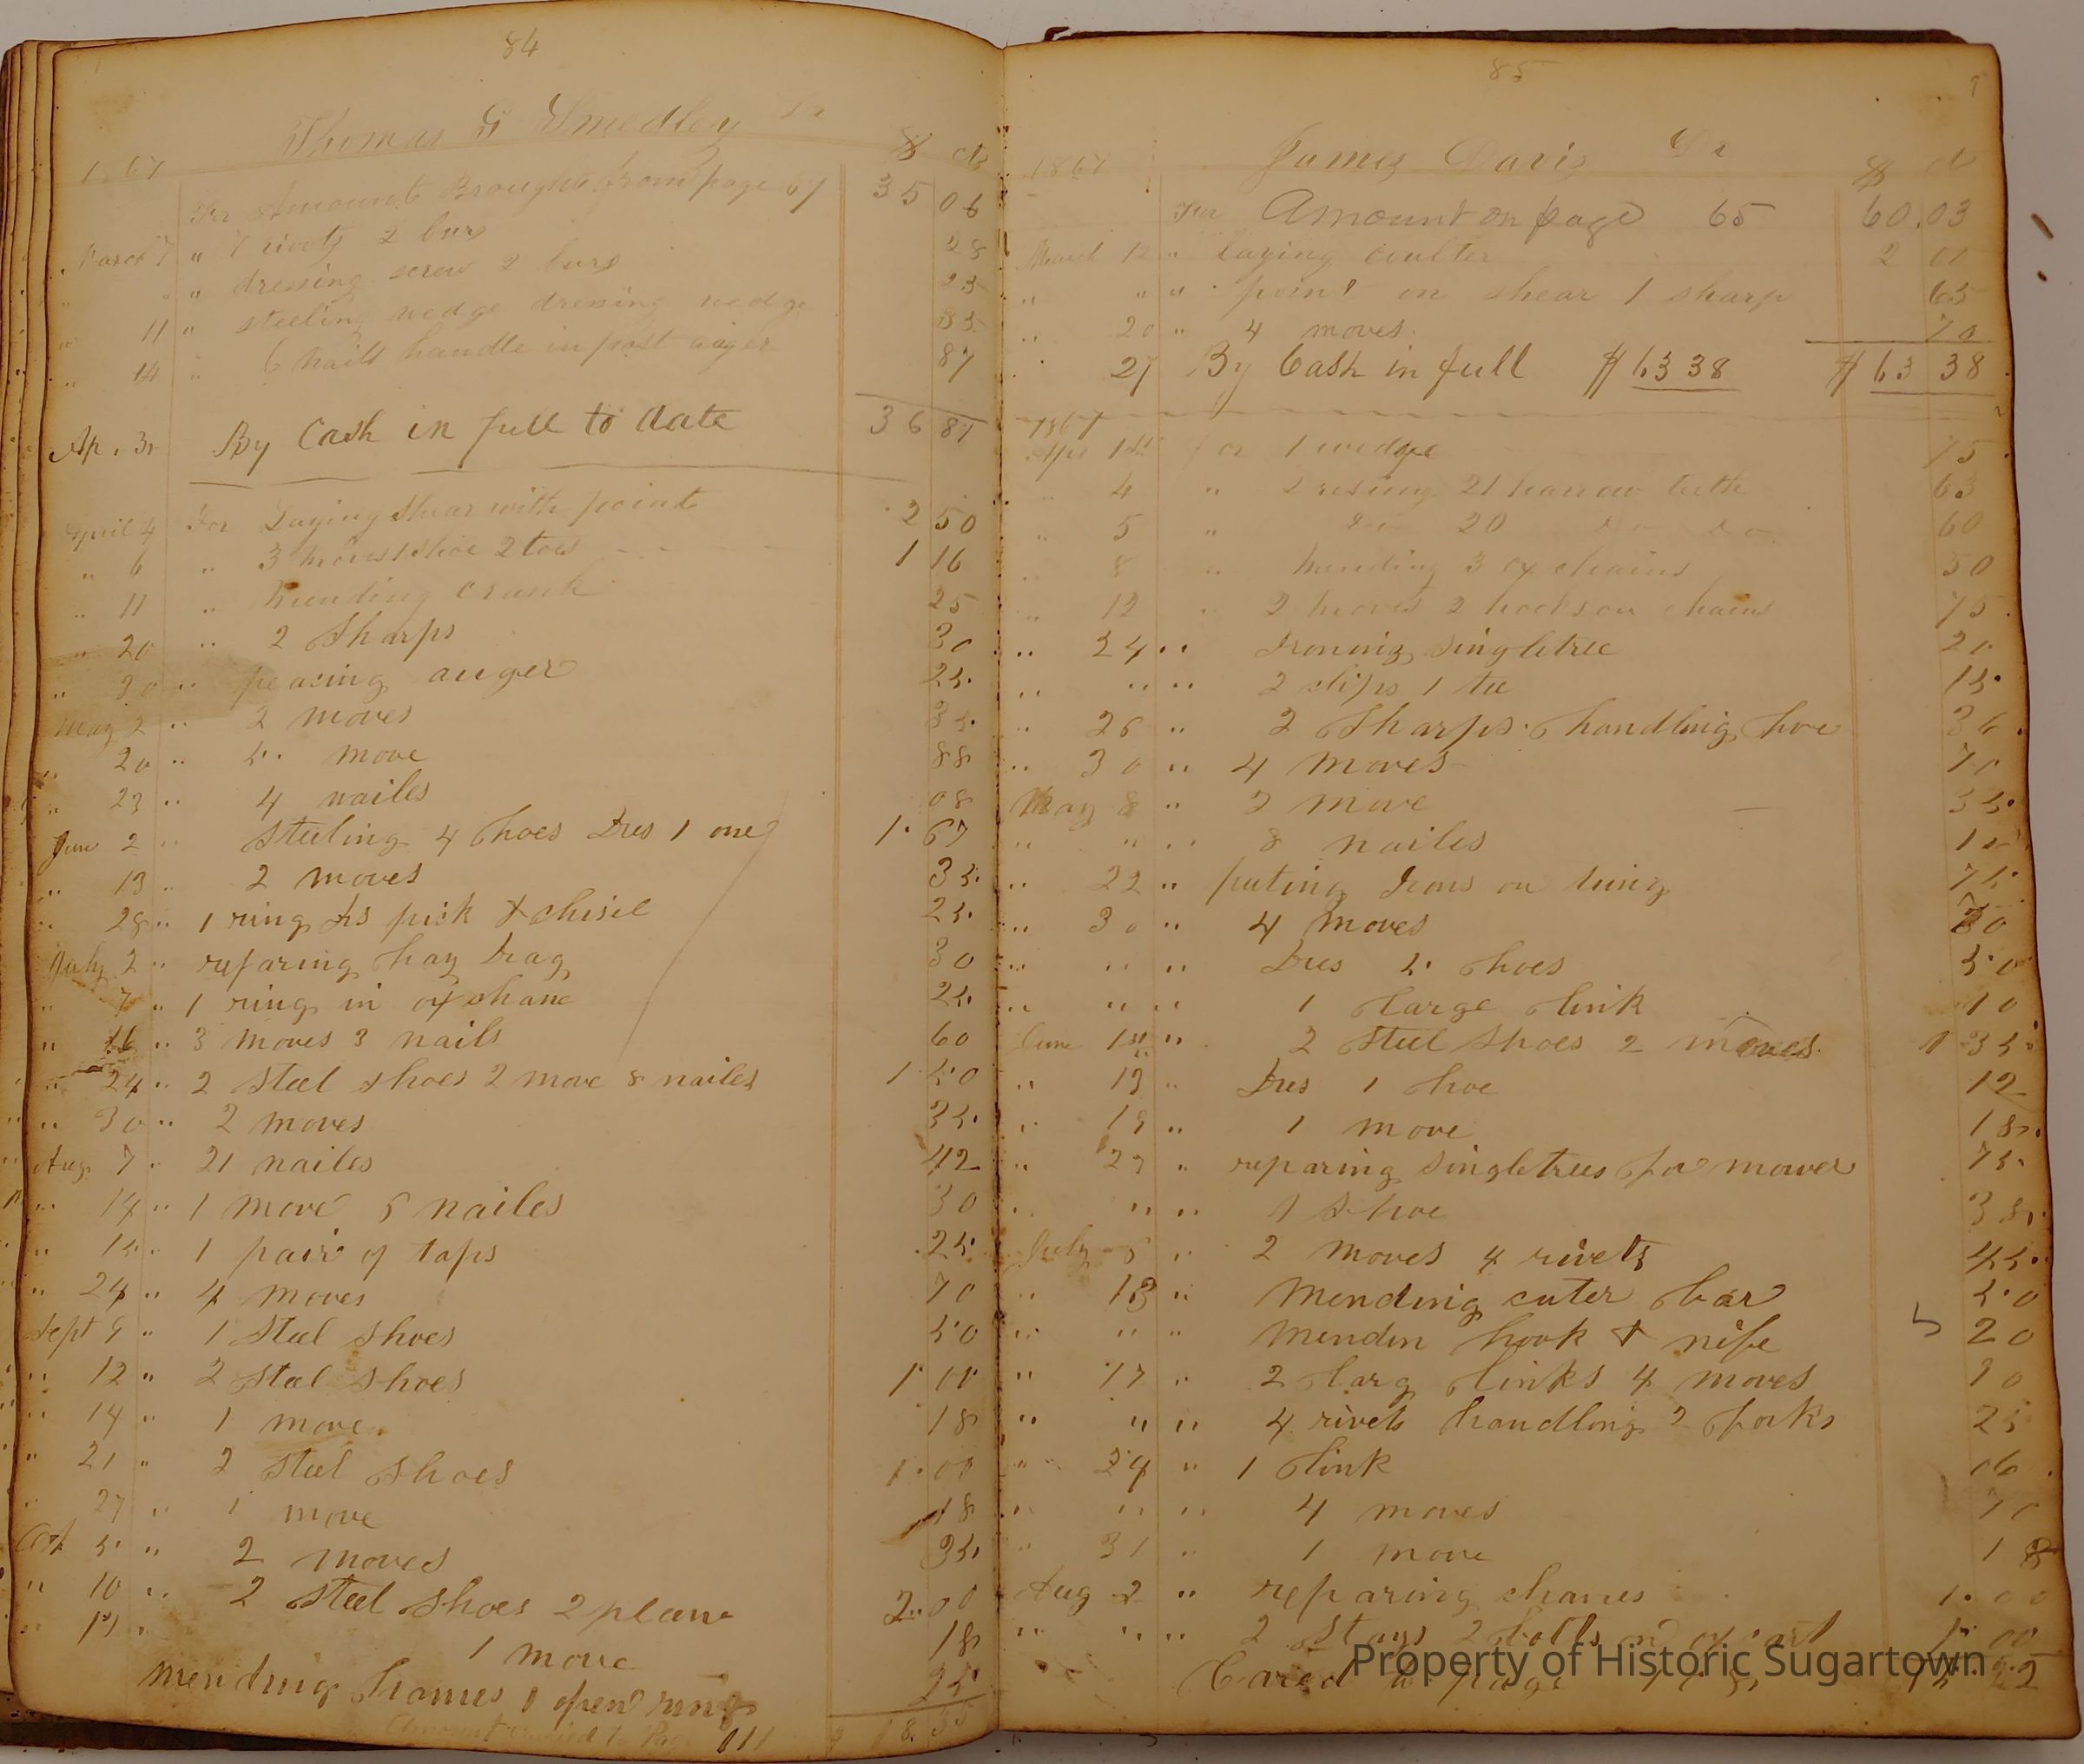 84
Thomas G Smedley Dr
1867 $ cts
For Amount Brought from page 67 35 06
March 7 " 7 rivets 2 burs 28
" " " dressing screw 2 burs 25
" 11 " steeling wedge dressing wedge
" 14 " 6 nails handle in post auger 87
Ap. By Cash in full to date 36 87
April 4 For Laying Shear with point 2 50
" 6 " 3 moves 1 shoe 2 toes 1 16
" 11 " mending crank 25
" 20 " 2 Sharps 30
" 30 " peacing auger 25
May 2 " 2 moves 35
" 20 " 5 move 88
" 23 " 4 nailes 08
June 2 " Steeling 4 shoes Dres 1 one 1.67
" 13 " 2 moves 35
" 28 " 1 ring Drs pick & chisel 25
July 2 " reparing hay Drag 30
" 7 " 1 ring in ox chane 25
" 16 " 3 moves 3 nails 60
" 24 " 2 steel shoes 2 move 8 nailes 1 50
" 30 " 2 moves 35
Aug 7 " 21 nailes 42
" 14 " 1 move 6 nailes 30
" 15 " 1 pair of taps 25
" 24 " 4 moves 70
Sept 9 " 1 Steel shoes 50
" 12 " 2 steel shoes 1.00
" 14 " 1 move 18
" 21 " 2 Steel shoes 1.00
" 27 " 1 move 18
Oct 5 " 2 moves 35
" 10 " 2 Steel Shoes 2 plane 2.00
" " 1 move 18
mending hames 1 open ring 25
Amount carried to Page 111 18.35
85
James Davis Dr
1867 $ ct
For Amount on page 65 60.03
March 12 " laying coulter 2 00
" " " point on shear 1 sharp 65
" 20 " 4 moves 70
" 27 By Cash in full $63 38 $63 38
1867
Apr 1st for 1 wedge 75
" 4 " Dresing 21 harrow teeth 63
" 5 " Do 20 Do Do 60
" 8 " mending 3 ox chains 50
" 12 " 2 moves 2 hooks on chains 75
" 24 " Ironing singletree 20
" " " 2 clips 1 toe 15
" 26 " 2 Sharps handling hoe 36
" 30 " 4 moves 70
May 8 " 2 move 35
" " " 8 nailes
" 22 " puting Irons on tung 75
" 30 " 4 moves 70
" " " Dres 5 shoes 50
" " " 1 large link 10
June 1st " 2 Steel Shoes 2 moves 1 35
" 13 " Dres 1 shoe 12
" 19 " 1 move 18
" 27 " reparing singletrees for mower 75
" " " 1 Shoe 38
July 6 " 2 moves 4 rivets 45
" 13 " Mending cuter bar 50
" " " Mendin hook & nife 20
" 17 " 2 larg links 4 moves 90
" " " 4 rivets handling 2 forks 25
" 24 " 1 link 06
" " " 4 moves 70
" 31 " 1 move 18
Aug 2 " reparing chanes 1.00
" " " 2 Stays 2 bolts on ox cart 1.00
Caried to page
Property of Historic Sugartown